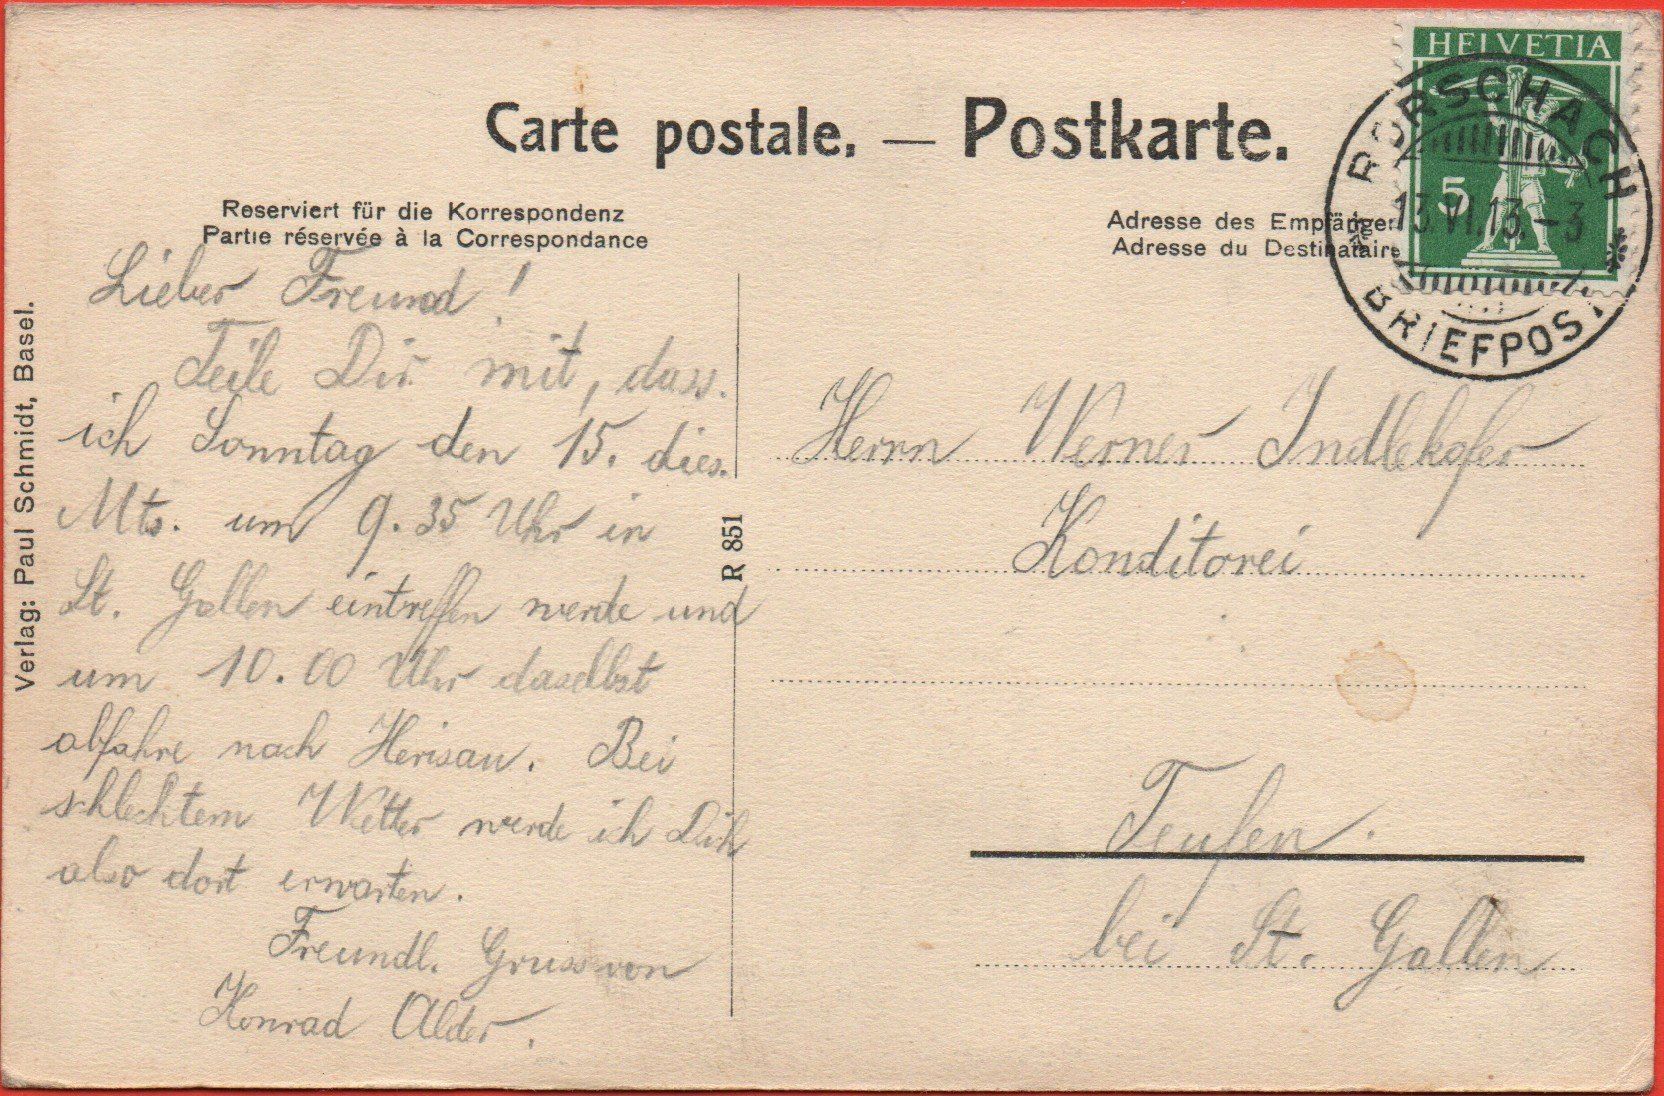 HELVETIA
5
RORSCHACH
13.VI.13.-3
BRIEFPOST
Carte postale. — Postkarte.
Reserviert für die Korrespondenz
Partie réservée à la Correspondance
Adresse des Empfänger
Adresse du Destinataire
Verlag: Paul Schmidt, Basel.
R 851
Lieber Freund!
Teile Dir mit, dass
ich Sonntag den 15. dies.
Mts. um 9.35 Uhr in
St. Gallen eintreffen werde und
um 10.00 Uhr daselbst
abfahre nach Herisau. Bei
schlechtem Wetter werde ich Dich
also dort erwarten.
Freundl. Gruss von
Konrad Alder.
Herrn Werner Indlekofer
Konditorei
Teufen.
bei St. Gallen